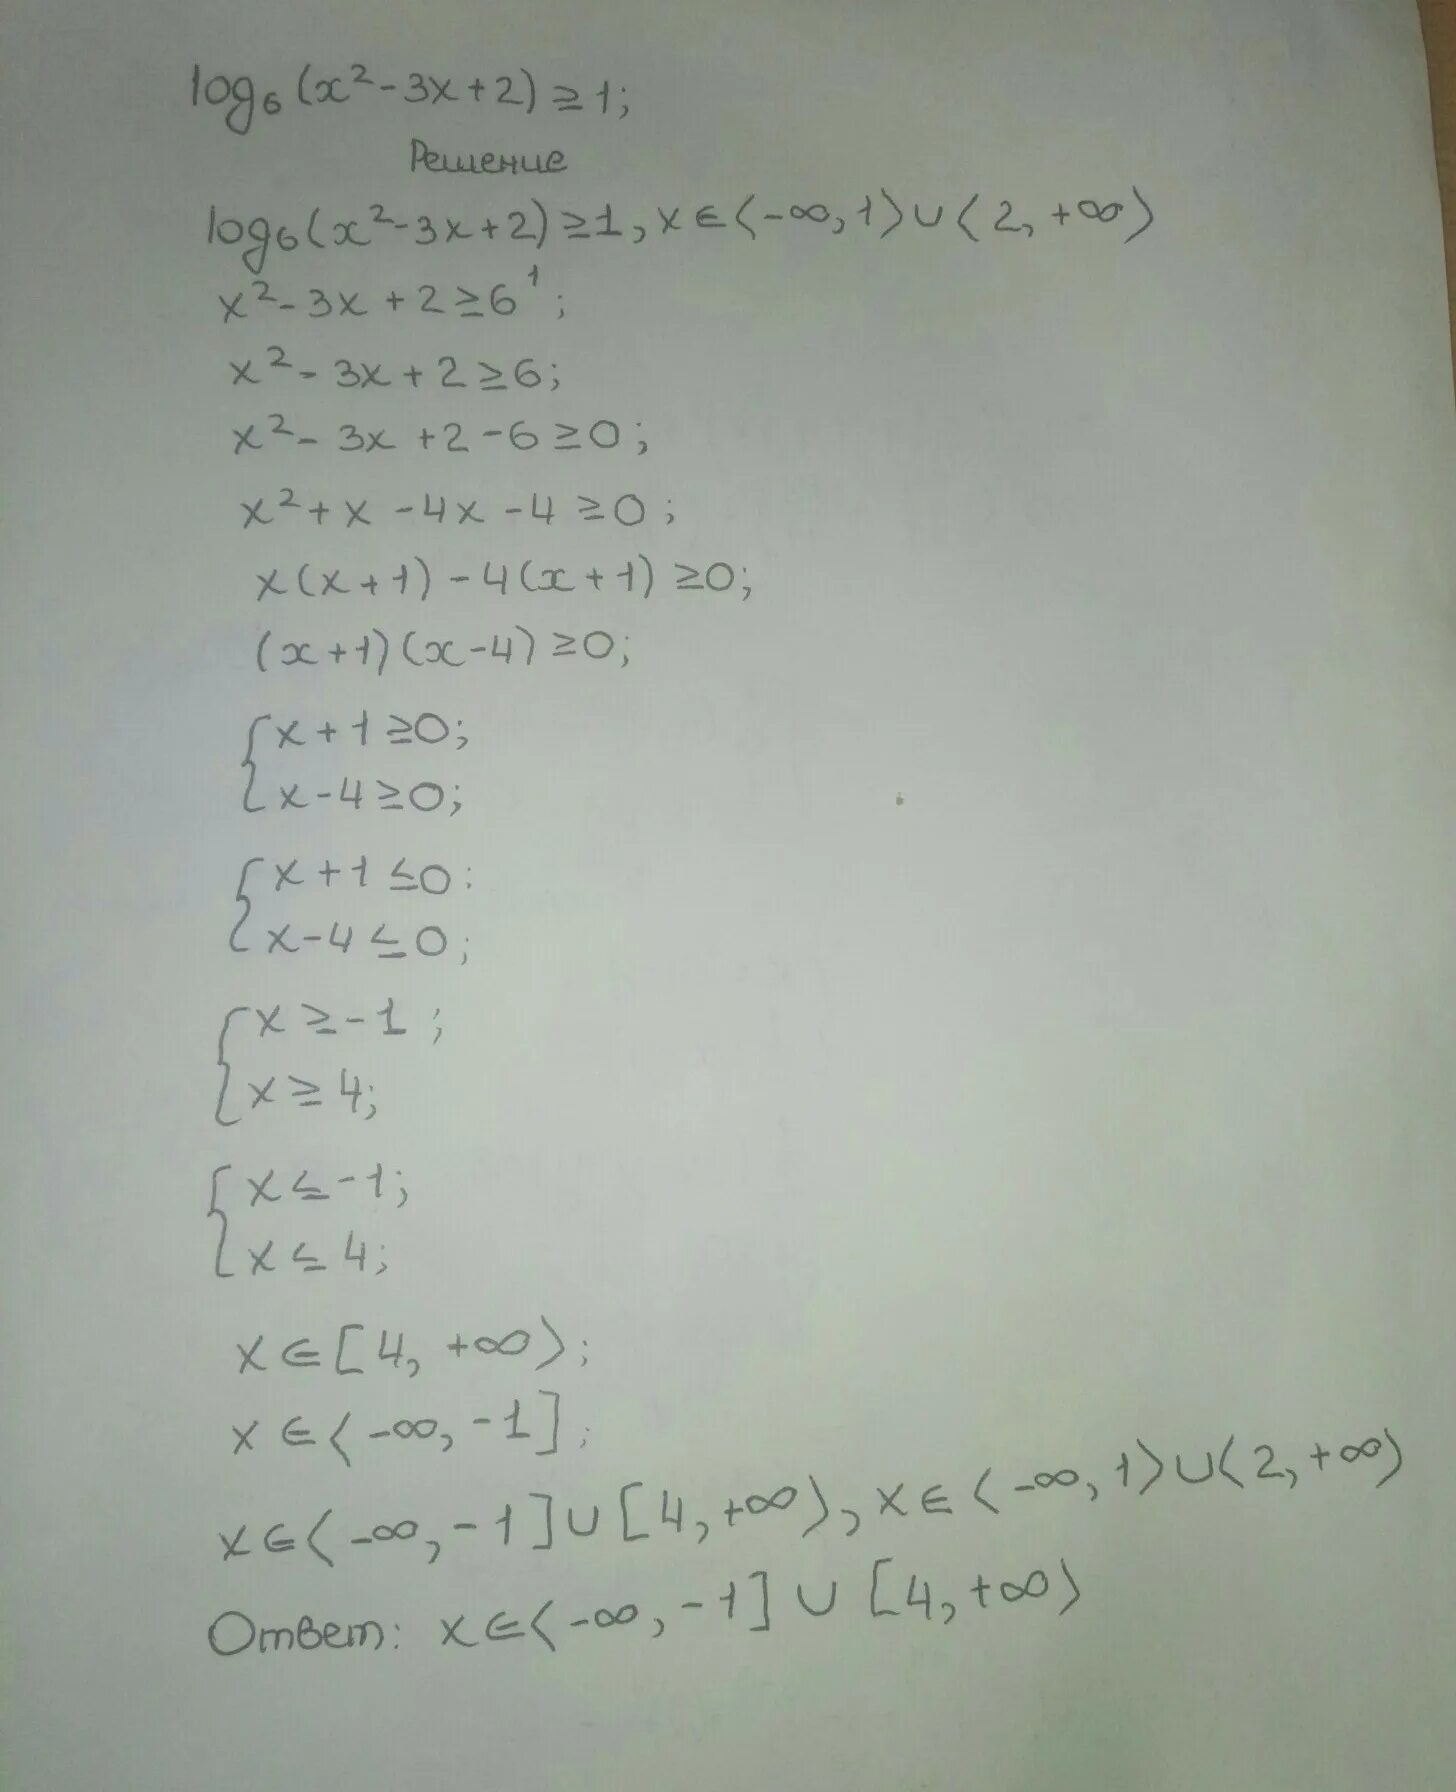 log₆(x²-3x+2)≥1;
Решение
log₆(x²-3x+2)≥1, x∈⟨-∞,1⟩∪⟨2,+∞⟩
x²-3x+2≥6¹;
x²-3x+2≥6;
x²-3x+2-6≥0;
x²+x-4x-4≥0;
x(x+1)-4(x+1)≥0;
(x+1)(x-4)≥0;
{x+1≥0;
x-4≥0;
{x+1≤0:
x-4≤0;
{x≥-1;
x≥4;
{x≤-1;
x≤4;
x∈[4,+∞⟩;
x∈⟨-∞,-1];
x∈⟨-∞,-1]∪[4,+∞⟩, x∈⟨-∞,1⟩∪⟨2,+∞⟩
Ответ: x∈⟨-∞,-1]∪[4,+∞⟩